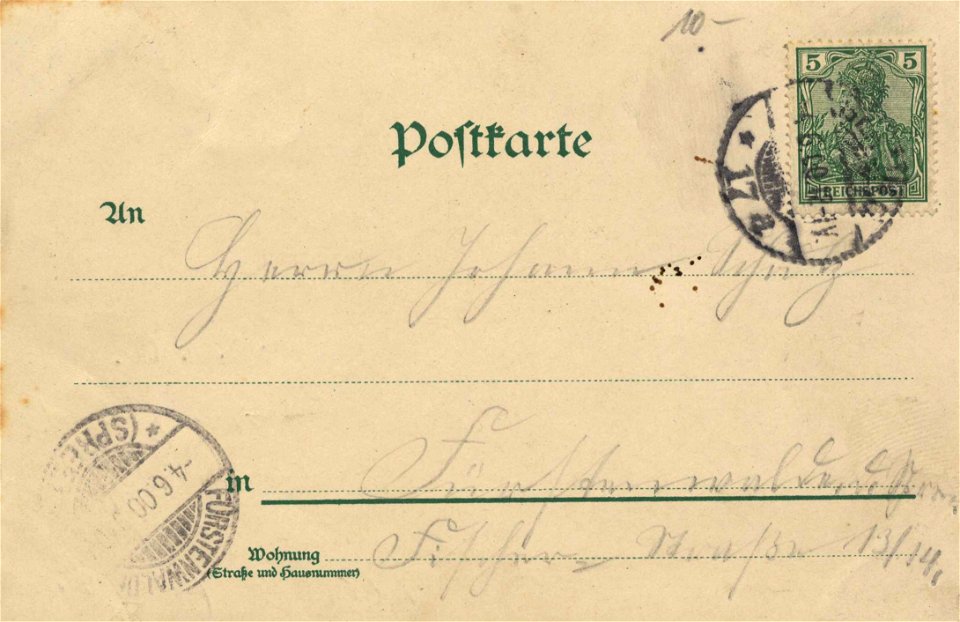 10-
5 5
REICHSPOST
* 17 a
Postkarte
An
Herrn Johann
* (SPREE
-4.6.00
FÜRSTENWALD
in Fürstenwalde
Wohnung
(Straße und Hausnummer)
Fischer Straße 13/14